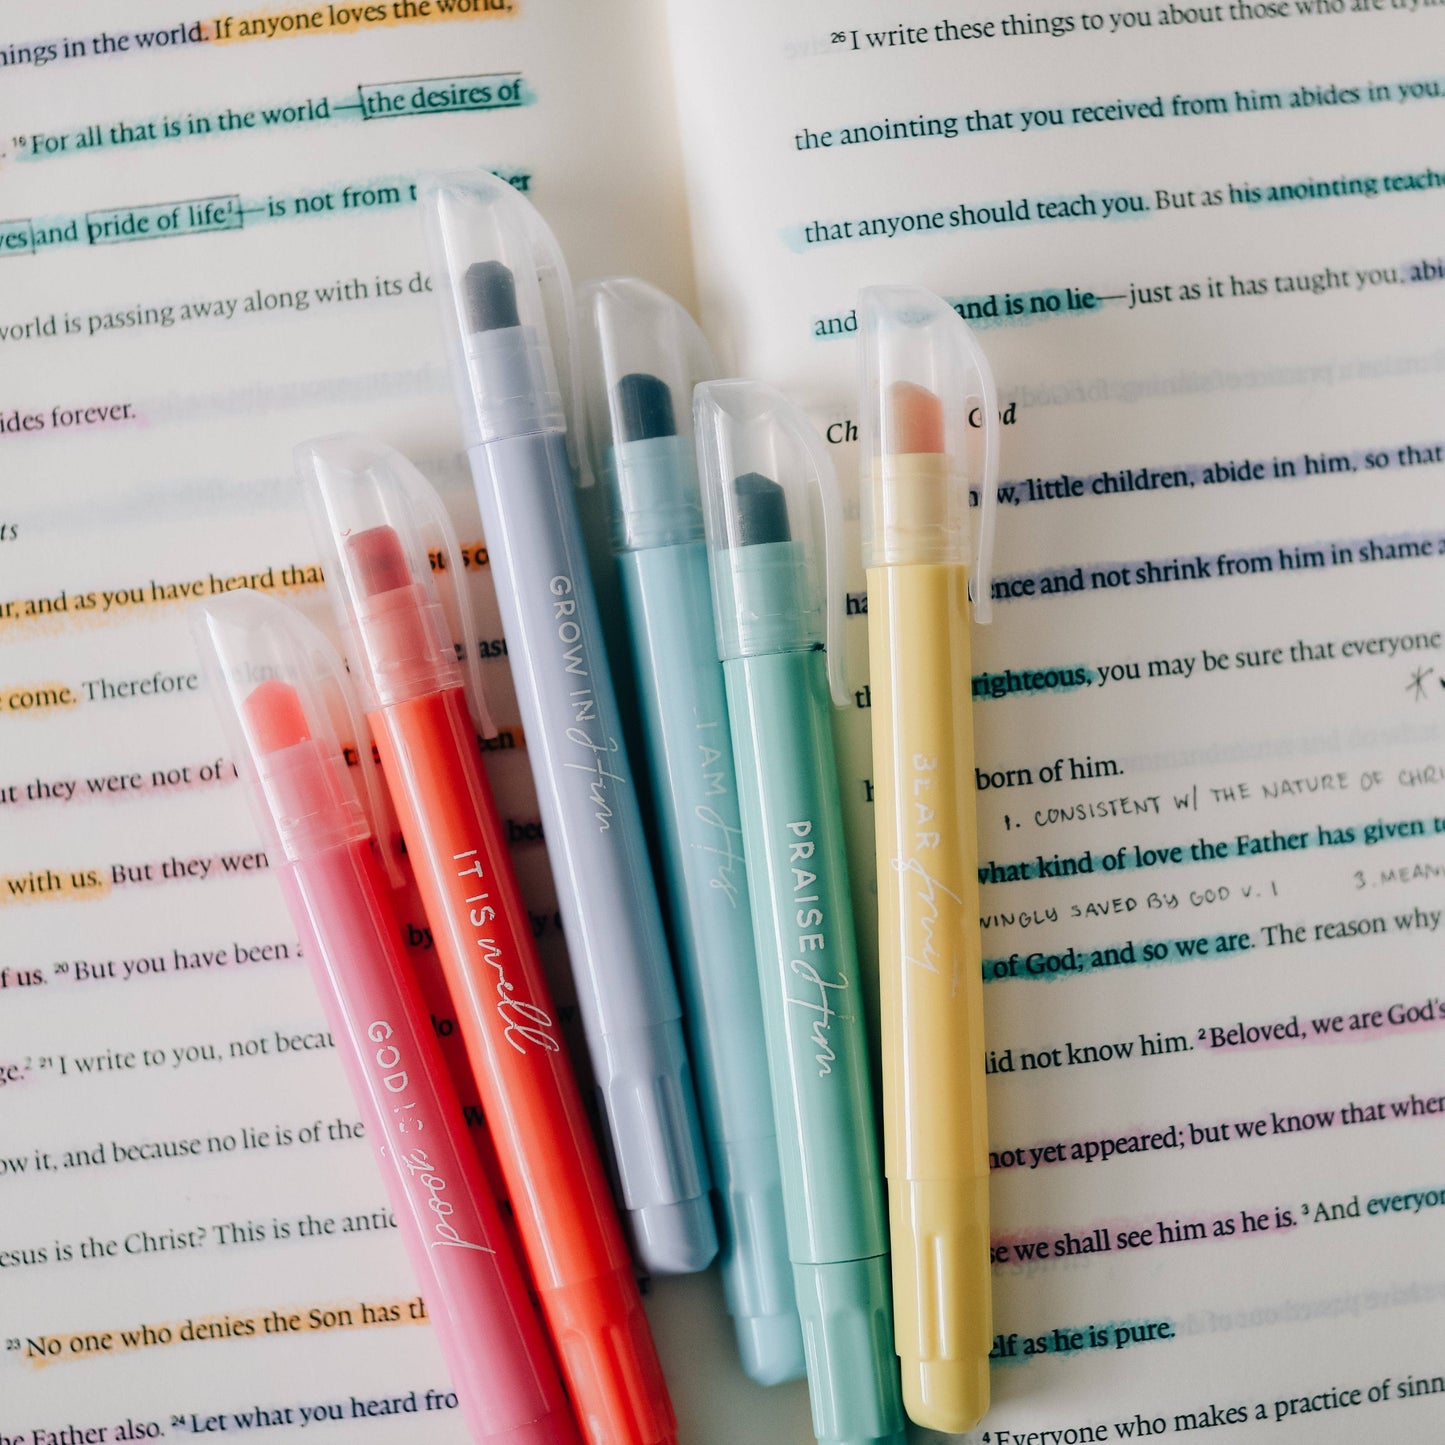 things in the world. If anyone loves the world,
¹⁶ For all that is in the world—the desires of
and pride of life¹—is not from
world is passing away along with its
forever.
and as you have heard that
come. Therefore
they were not of
with us. But they
of us. ²⁰ But you have been
²¹ I write to you, not
it, and because no lie is of the
Jesus is the Christ? This is the
²³ No one who denies the Son has
the Father also. ²⁴ Let what you heard
²⁶ I write these things to you about those who are
the anointing that you received from him abides in you,
that anyone should teach you. But as his anointing
and and is no lie—just as it has taught you,
God
little children, abide in him, so that
and not shrink from him in shame
righteous, you may be sure that everyone
born of him.
1. CONSISTENT W/ THE NATURE OF
what kind of love the Father has given
SAVED BY GOD V. 1 3.
of God; and so we are. The reason why
did not know him. ² Beloved, we are God's
not yet appeared; but we know that when
we shall see him as he is. ³ And
as he is pure.
⁴ Everyone who makes a practice of
GOD IS good
IT IS well
GROW IN Him
I AM His
PRAISE Him
BEAR fruit